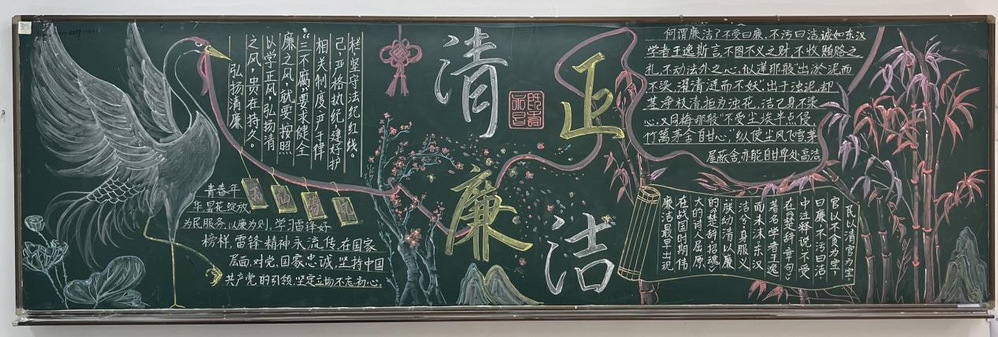 栏坚守法纪红线。
己,严格执纪,维好护
相关制度,严于律
"三不腐"要求健全
廉之风,就要按照
以学正风,弘扬清
之风,贵在持久。
弘扬清廉
青春年
华,昙花绽放
为民服务,以廉为则,学习雷锋好
榜样,雷锋精神永流传,在国家
层面,对党,国家忠诚,坚持中国
共产党的引领,坚定立场不忘初心。
清正
廉洁
何谓廉洁?不受曰廉,不污曰洁诚如东汉
学者王逸斯言,不图不义之财,不收贿赂之
礼,不动法外之心,似莲那般"出淤泥而
不染,濯清涟而不妖"出于浊泥,却
某净枝清拒为浊花,洁己身不染
心,又月梅那般"不受尘埃半点侵
竹篱茅舍自甘心"纵使尘风飞雪草
屋蔽舍亦能自甘卑处高洁
民以清官为宝,
官以不贪为宝,
曰廉,不污曰洁
中注释说"不受
在《楚辞·章句》
著名学者王逸
而未沫"东汉
洁兮,身服义
朕幼清以廉
的《楚辞·招魂》
大的诗人屈原
在战国时期伟
廉洁最早出现